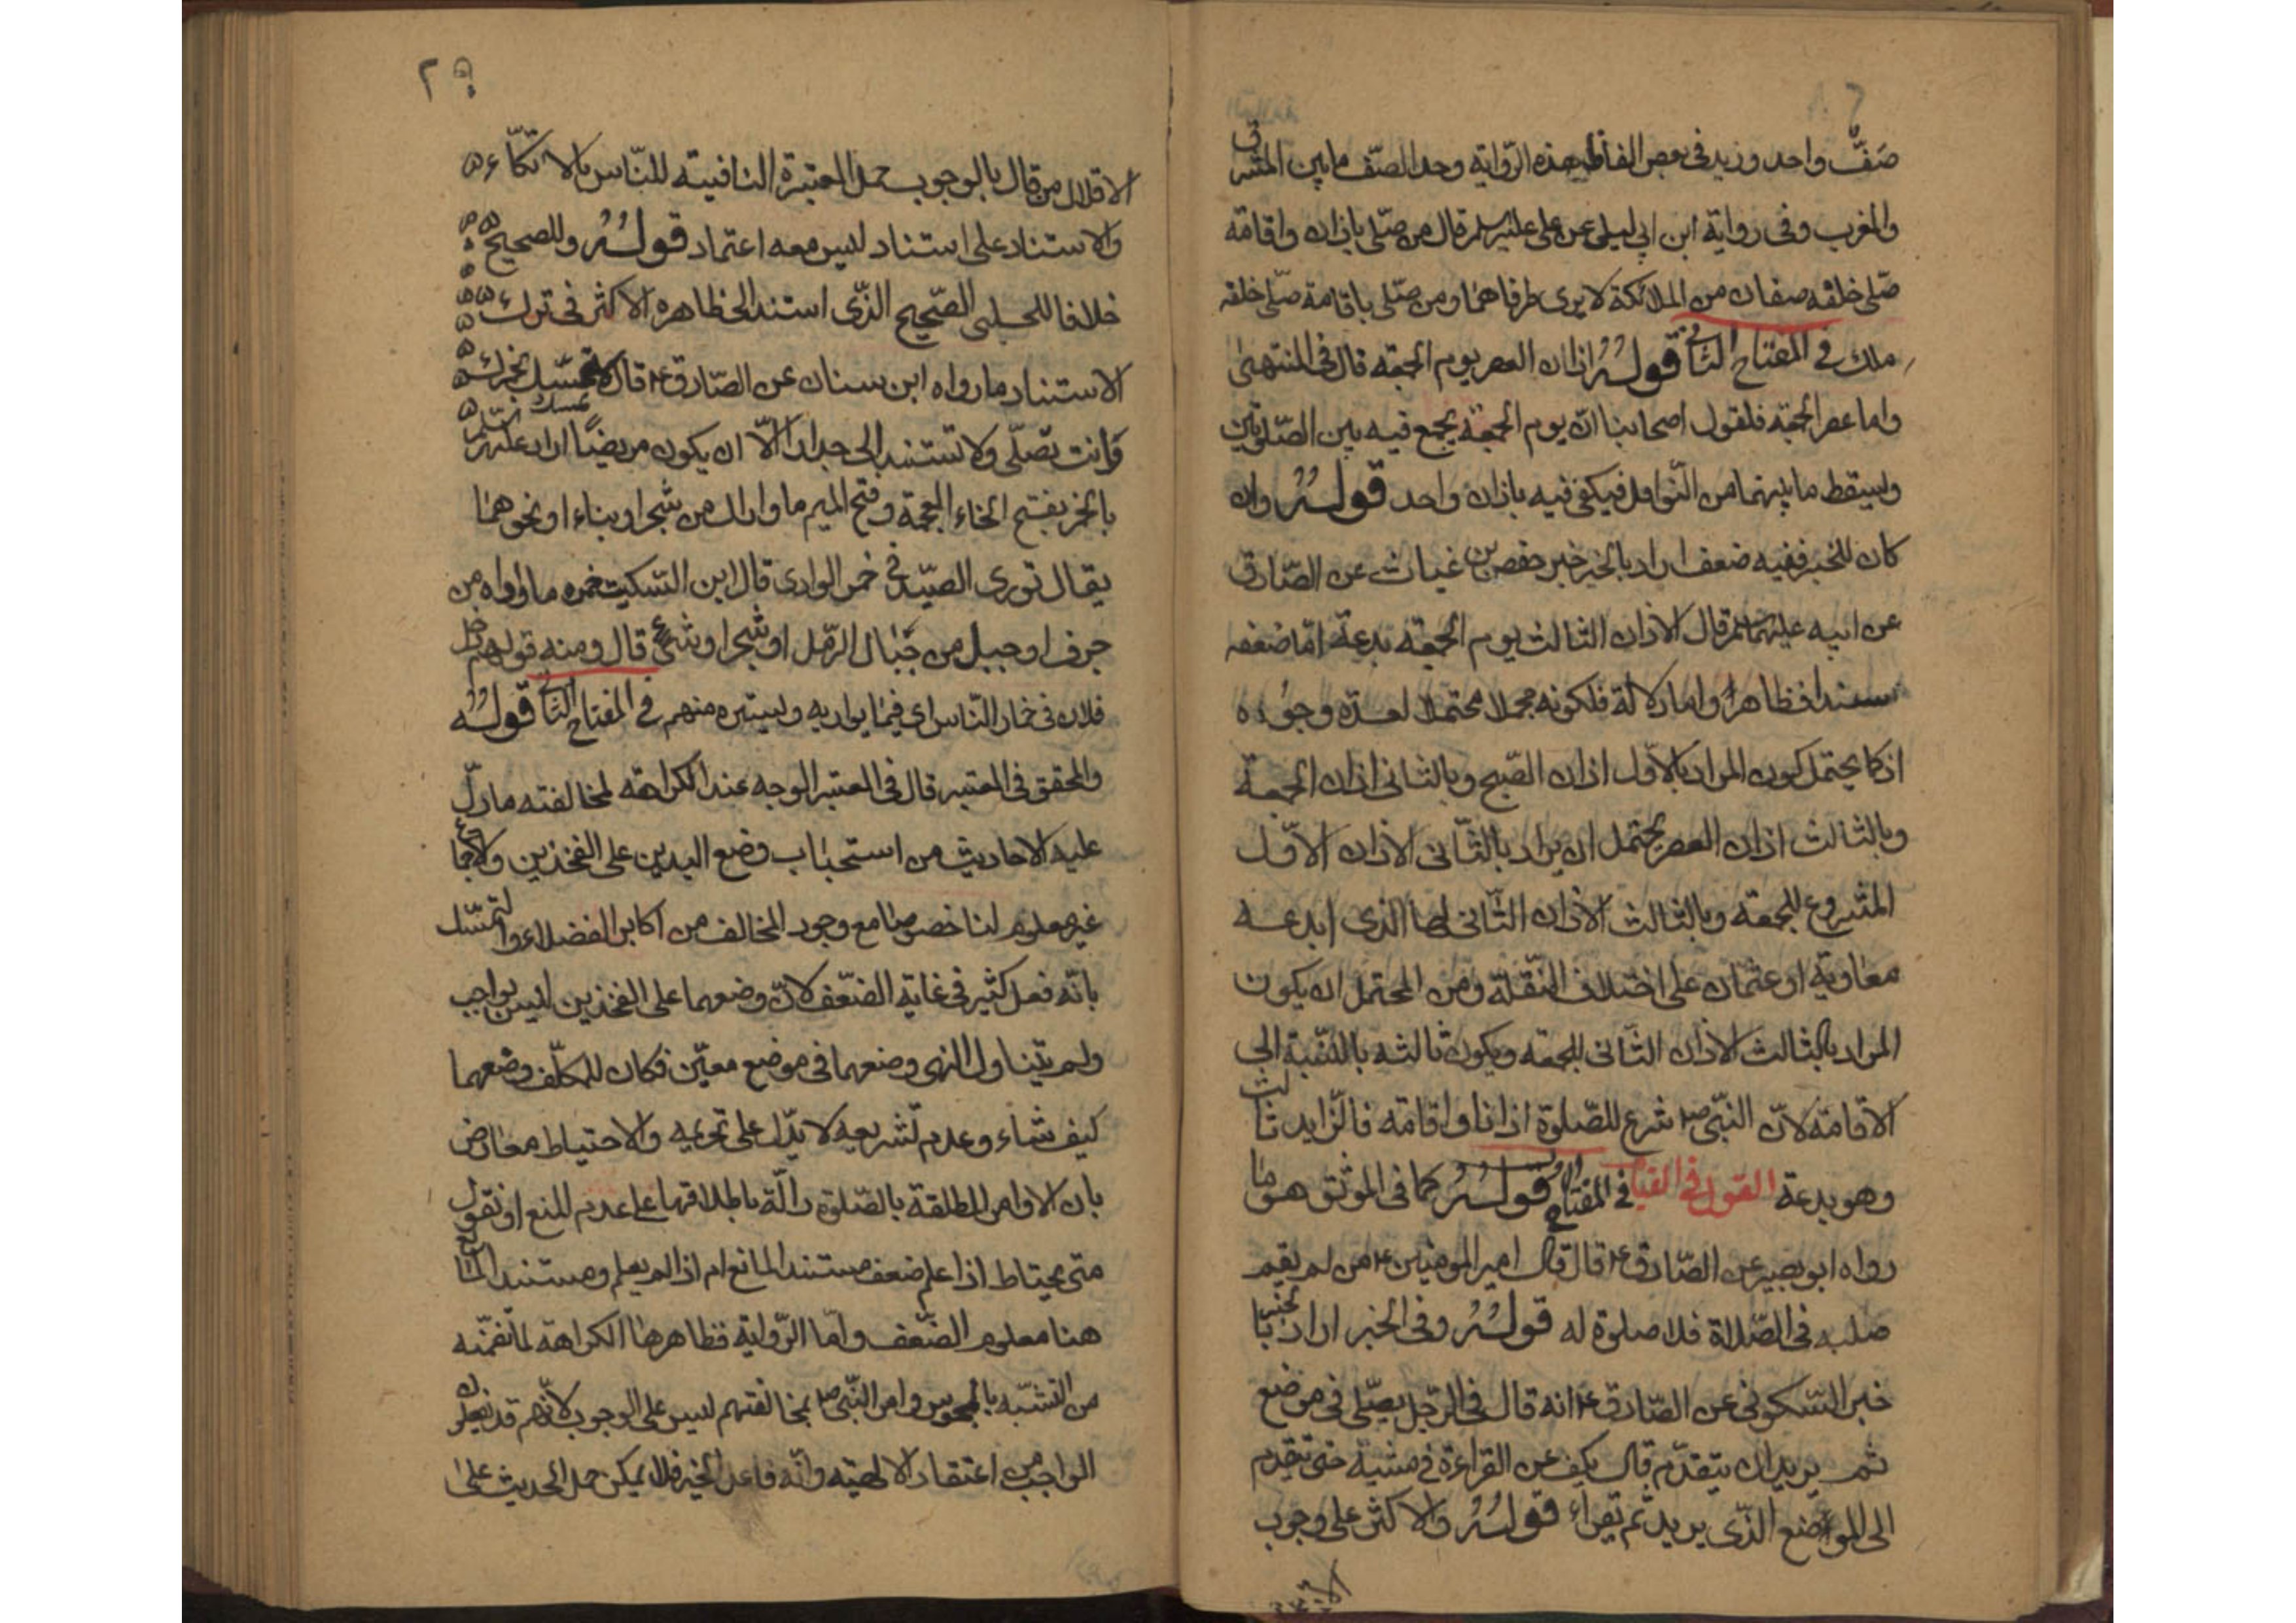 صَفٌّ واحد وزيد في بعض الفاظ هذه الرّواية وحد الصّف ما بين المشرق
والمغرب وفي رواية ابن ابي ليلى عن علي عليه السلم قال من صلّى باذان واقامة
صلى خلفه صفان من الملائكة لا يرى طرفاهما ومن صلّى باقامة صلّى خلفه
ملك في المفتاح الثاني قوله اذان العصر يوم الجمعة قال في المنتهى
واما عصر الجمعة فلقول اصحابنا انّ يوم الجمعة يجمع فيه بين الصّلوتين
ويسقط ما بينهما من النّوافل فيكفي فيه باذان واحد قوله وان
كان للخبر ففيه ضعف اراد بالخبر خبر حفص بن غياث عن الصّادق
عن ابيه عليهما السلم قال الاذان الثالث يوم الجمعة بدعة امّا ضعفه
سندا فظاهر واما دلالة فلكونه مجملا محتملا لعدّة وجوه
اذ كما يحتمل كون المراد بالاوّل اذان الصّبح وبالثاني اذان الجمعة
وبالثالث اذان العصر يحتمل ان يراد بالثّاني الاذان الاوّل
المشروع للجمعة وبالثالث الاذان الثّاني لها الذي ابدعه
معاوية او عثمان على اختلاف النّقلة ومن المحتمل ان يكون
المراد بالثالث الاذان الثّاني للجمعة ويكون ثالثه بالنّسبة الى
الاقامة لانّ النبّي ص شرع للصّلوة اذانا واقامة فالزّايد ثالث
وهو بدعة القول في القيام في المفتاح قوله كما في الموثق هو ما
رواه ابو بصير عن الصّادق ع قال قال امير المومنين ع من لم يقيم
صلبه في الصّلاة فلا صلوة له قوله وفي الخبر اراد بالخبر
خبر السّكوني عن الصّادق ع انه قال في الرّجل يصّلي في موضع
ثم يريد ان يتقدّم قال يكف عن القراءة في مشيه حتى يتقدم
الى الموضع الذّي يريد ثم يقراء قوله والاكثر على وجوب
الا
٢٩
الاقلال من قال بالوجوب حمل المعتبرة النافية للنّاس بالاتكّاء
والاستناد على استناد ليس معه اعتماد قوله وللصحيح
خلافا للحلبي الصّحيح الذّي استند الى ظاهره الاكثر في ترك
الاستناد ما رواه ابن سنان عن الصّادق ع قال لا تمسّك بخمرك
وانت تصلّي ولا تستند الى جدار الّا ان يكون مريضًا اراد عليه السلم
بالخمر بفتح الخاء المعجمة وفتح الميم ما واراك من شجر او بناء او نحوهما
يقال توري الصيّد في خمر الوادي قال ابن السّكيت خمره ما واراه من
جرف او جبل من جبال الرّمل او شجر او شئ قال ومنه قولهم دخل
فلان في خمار النّاس اي فيما يواريه ويستره منهم في المفتاح الثاني قوله
والمحقق في المعتبر قال في المعتبر الوجه عند الكراهة لمخالفته ما دلّ
عليه الاحاديث من استحباب وضع اليدين على الفخذين والاجماع
غير معلوم لنا خصوصا مع وجود المخالف من اكابر الفضلاء والتمسّك
بانّه فعل كثير في غاية الضّعف لانّ وضعهما على الفخذين ليس بواجب
ولم يتناول النهي وضعهما في موضع معيّن فكان للمكلّف وضعهما
كيف شاء وعدم تشريعه لا يدّل على تحريمه والاحتياط معارض
بان الاوامر المطلقة بالصّلوة دالّة باطلاقها على عدم المنع او نقول
متى يحتاط اذا علم ضعف مستند المانع ام اذا لم يعلم ومستند المانع
هنا معلوم الضّعف وامّا الرّواية فظاهرها الكراهة لما تضمّنه
من التشبّه بالمجوس وامر النبّي ص بمخالفتهم ليس على الوجوب لانّهم قد يفعلون
الواجب من اعتقاد الالهية وانّه فاعل الخير فلا يمكن حمل الحديث على